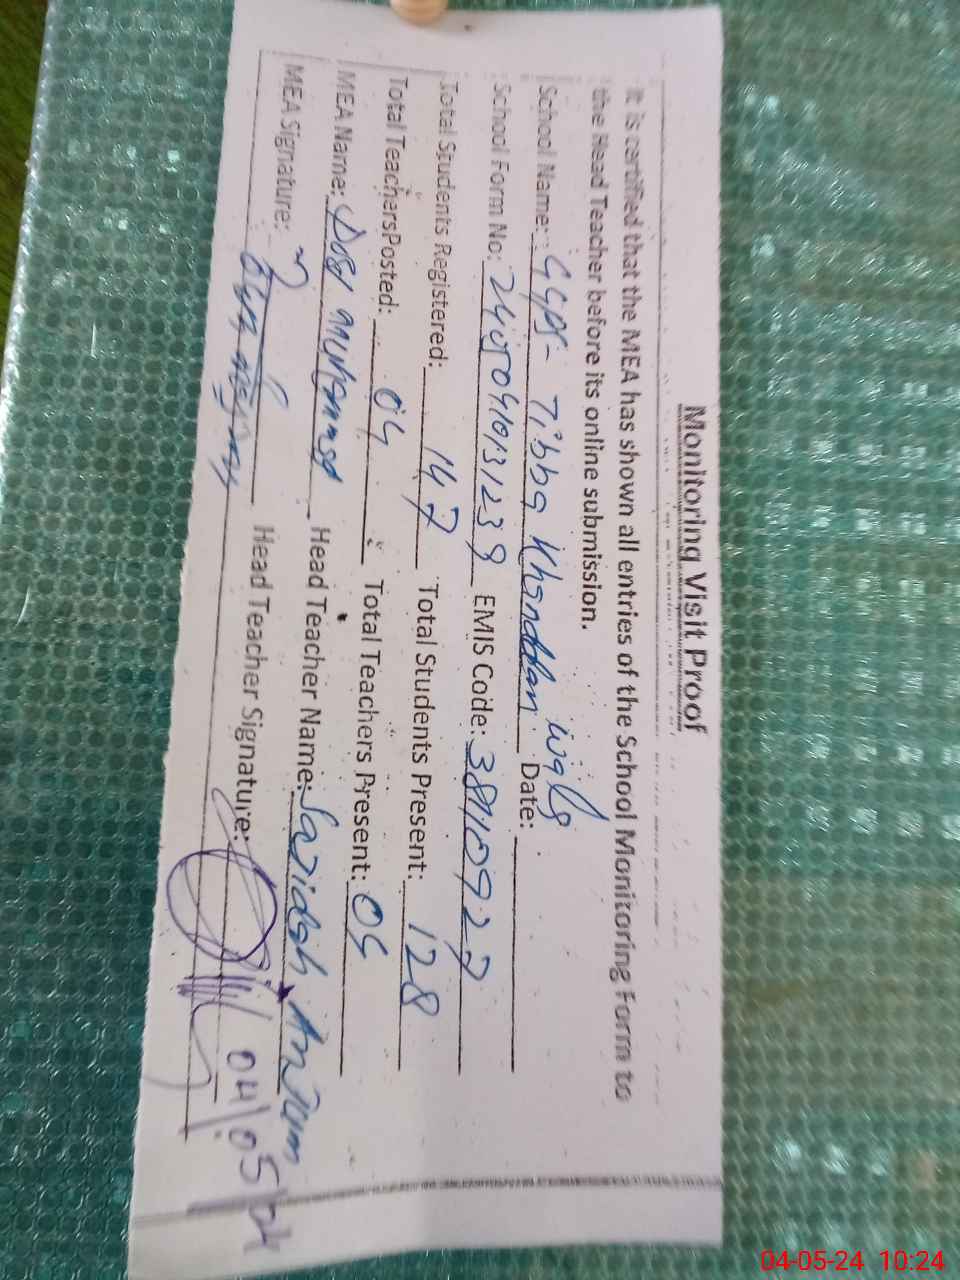 Monitoring Visit Proof
It is certified that the MEA has shown all entries of the School Monitoring Form to
the Head Teacher before its online submission.
School Name: GGPS- Tibba Khanddan wala Date:
School Form No: EMIS Code: 38110927
Total Students Registered: 147 Total Students Present: 128
Total Teachers Posted: 04 Total Teachers Present: 04
MEA Name: Head Teacher Name: Sajidah Anjum
MEA Signature: Head Teacher Signature:
04/05/24
04-05-24 10:24